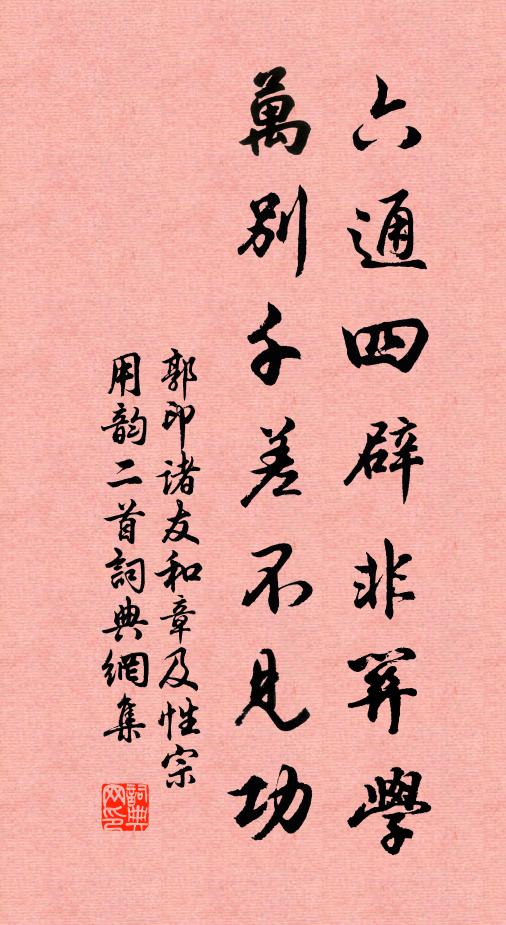 六通四辟非算學
萬别千差不見功
郭印诸友和章及性宗
用韵二首詞典網集
詞典网印